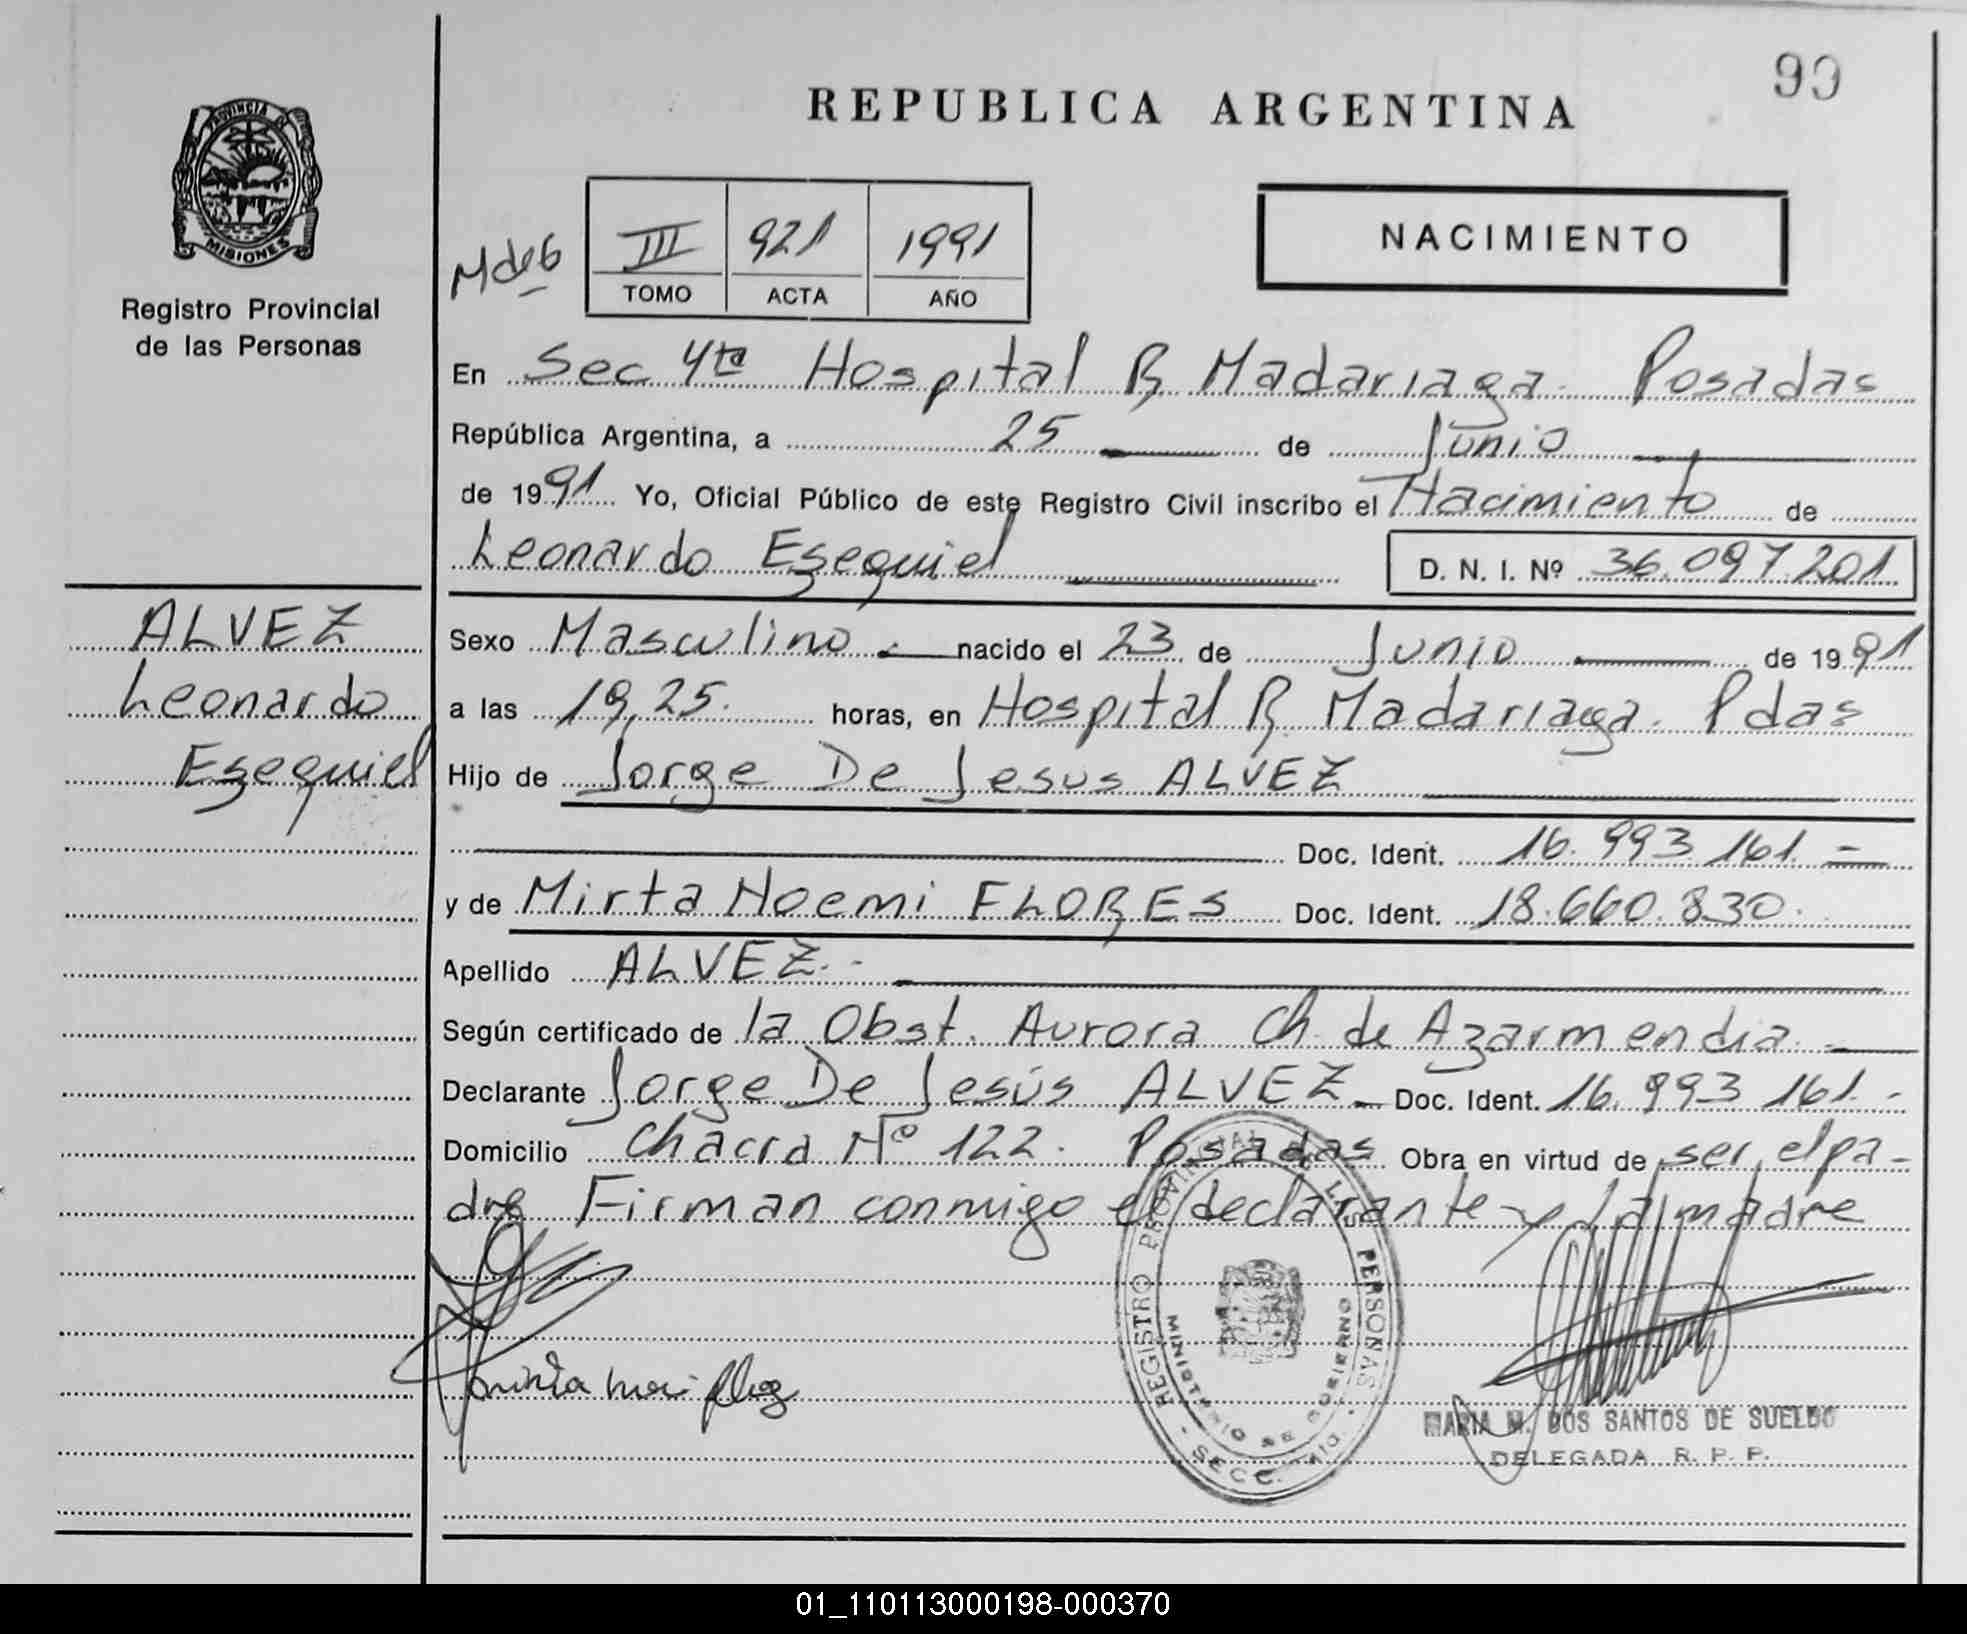 99
REPUBLICA ARGENTINA
PROVINCIA DE
MISIONES
Registro Provincial
de las Personas
III 921 1991
TOMO ACTA AÑO
NACIMIENTO
En Sec 4ta Hospital R Madariaga. Posadas
República Argentina, a 25 de Junio
de 1991 Yo, Oficial Público de este Registro Civil inscribo el Nacimiento de
Leonardo Esequiel D. N. I. Nº 36.097.201
ALVEZ
Leonardo
Esequiel
Sexo Masculino. nacido el 23 de Junio de 1991
a las 19,25. horas, en Hospital R. Madariaga. Pdas
Hijo de Jorge De Jesus ALVEZ
Doc. Ident. 16.993.161.-
y de Mirta Noemi FLORES Doc. Ident. 18.660.830.
Apellido ALVEZ.-
Según certificado de la Obst. Aurora Ch. de Azarmendia.
Declarante Jorge De Jesús ALVEZ Doc. Ident. 16.993.161.-
Domicilio Chacra Nº 122. Posadas Obra en virtud de ser el pa-
dre Firman conmigo el declarante y la madre
REGISTRO PROVINCIAL DE LAS PERSONAS
MINISTERIO DE GOBIERNO
SECC. 4ta.
MARIA M. DOS SANTOS DE SUELDO
DELEGADA R. P. P.
01_110113000198-000370